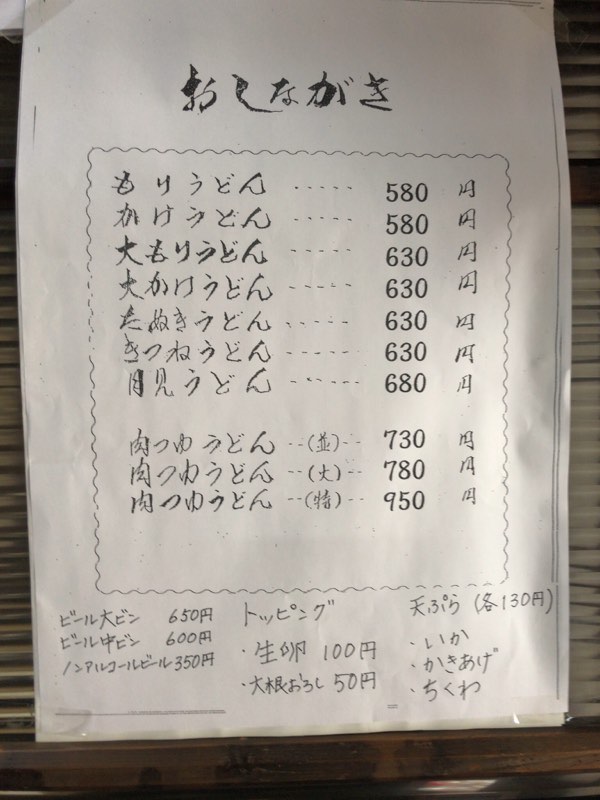 おしながき
もりうどん ····· 580 円
かけうどん ····· 580 円
大もりうどん ····· 630 円
大かけうどん ····· 630 円
たぬきうどん ····· 630 円
きつねうどん ····· 630 円
月見うどん ····· 680 円
肉つゆうどん ··(並)·· 730 円
肉つゆうどん ··(大)·· 780 円
肉つゆうどん ··(特)·· 950 円
ビール大ビン 650円
ビール中ビン 600円
ノンアルコールビール 350円
トッピング
・生卵 100円
・大根おろし 50円
天ぷら (各130円)
・いか
・かきあげ
・ちくわ